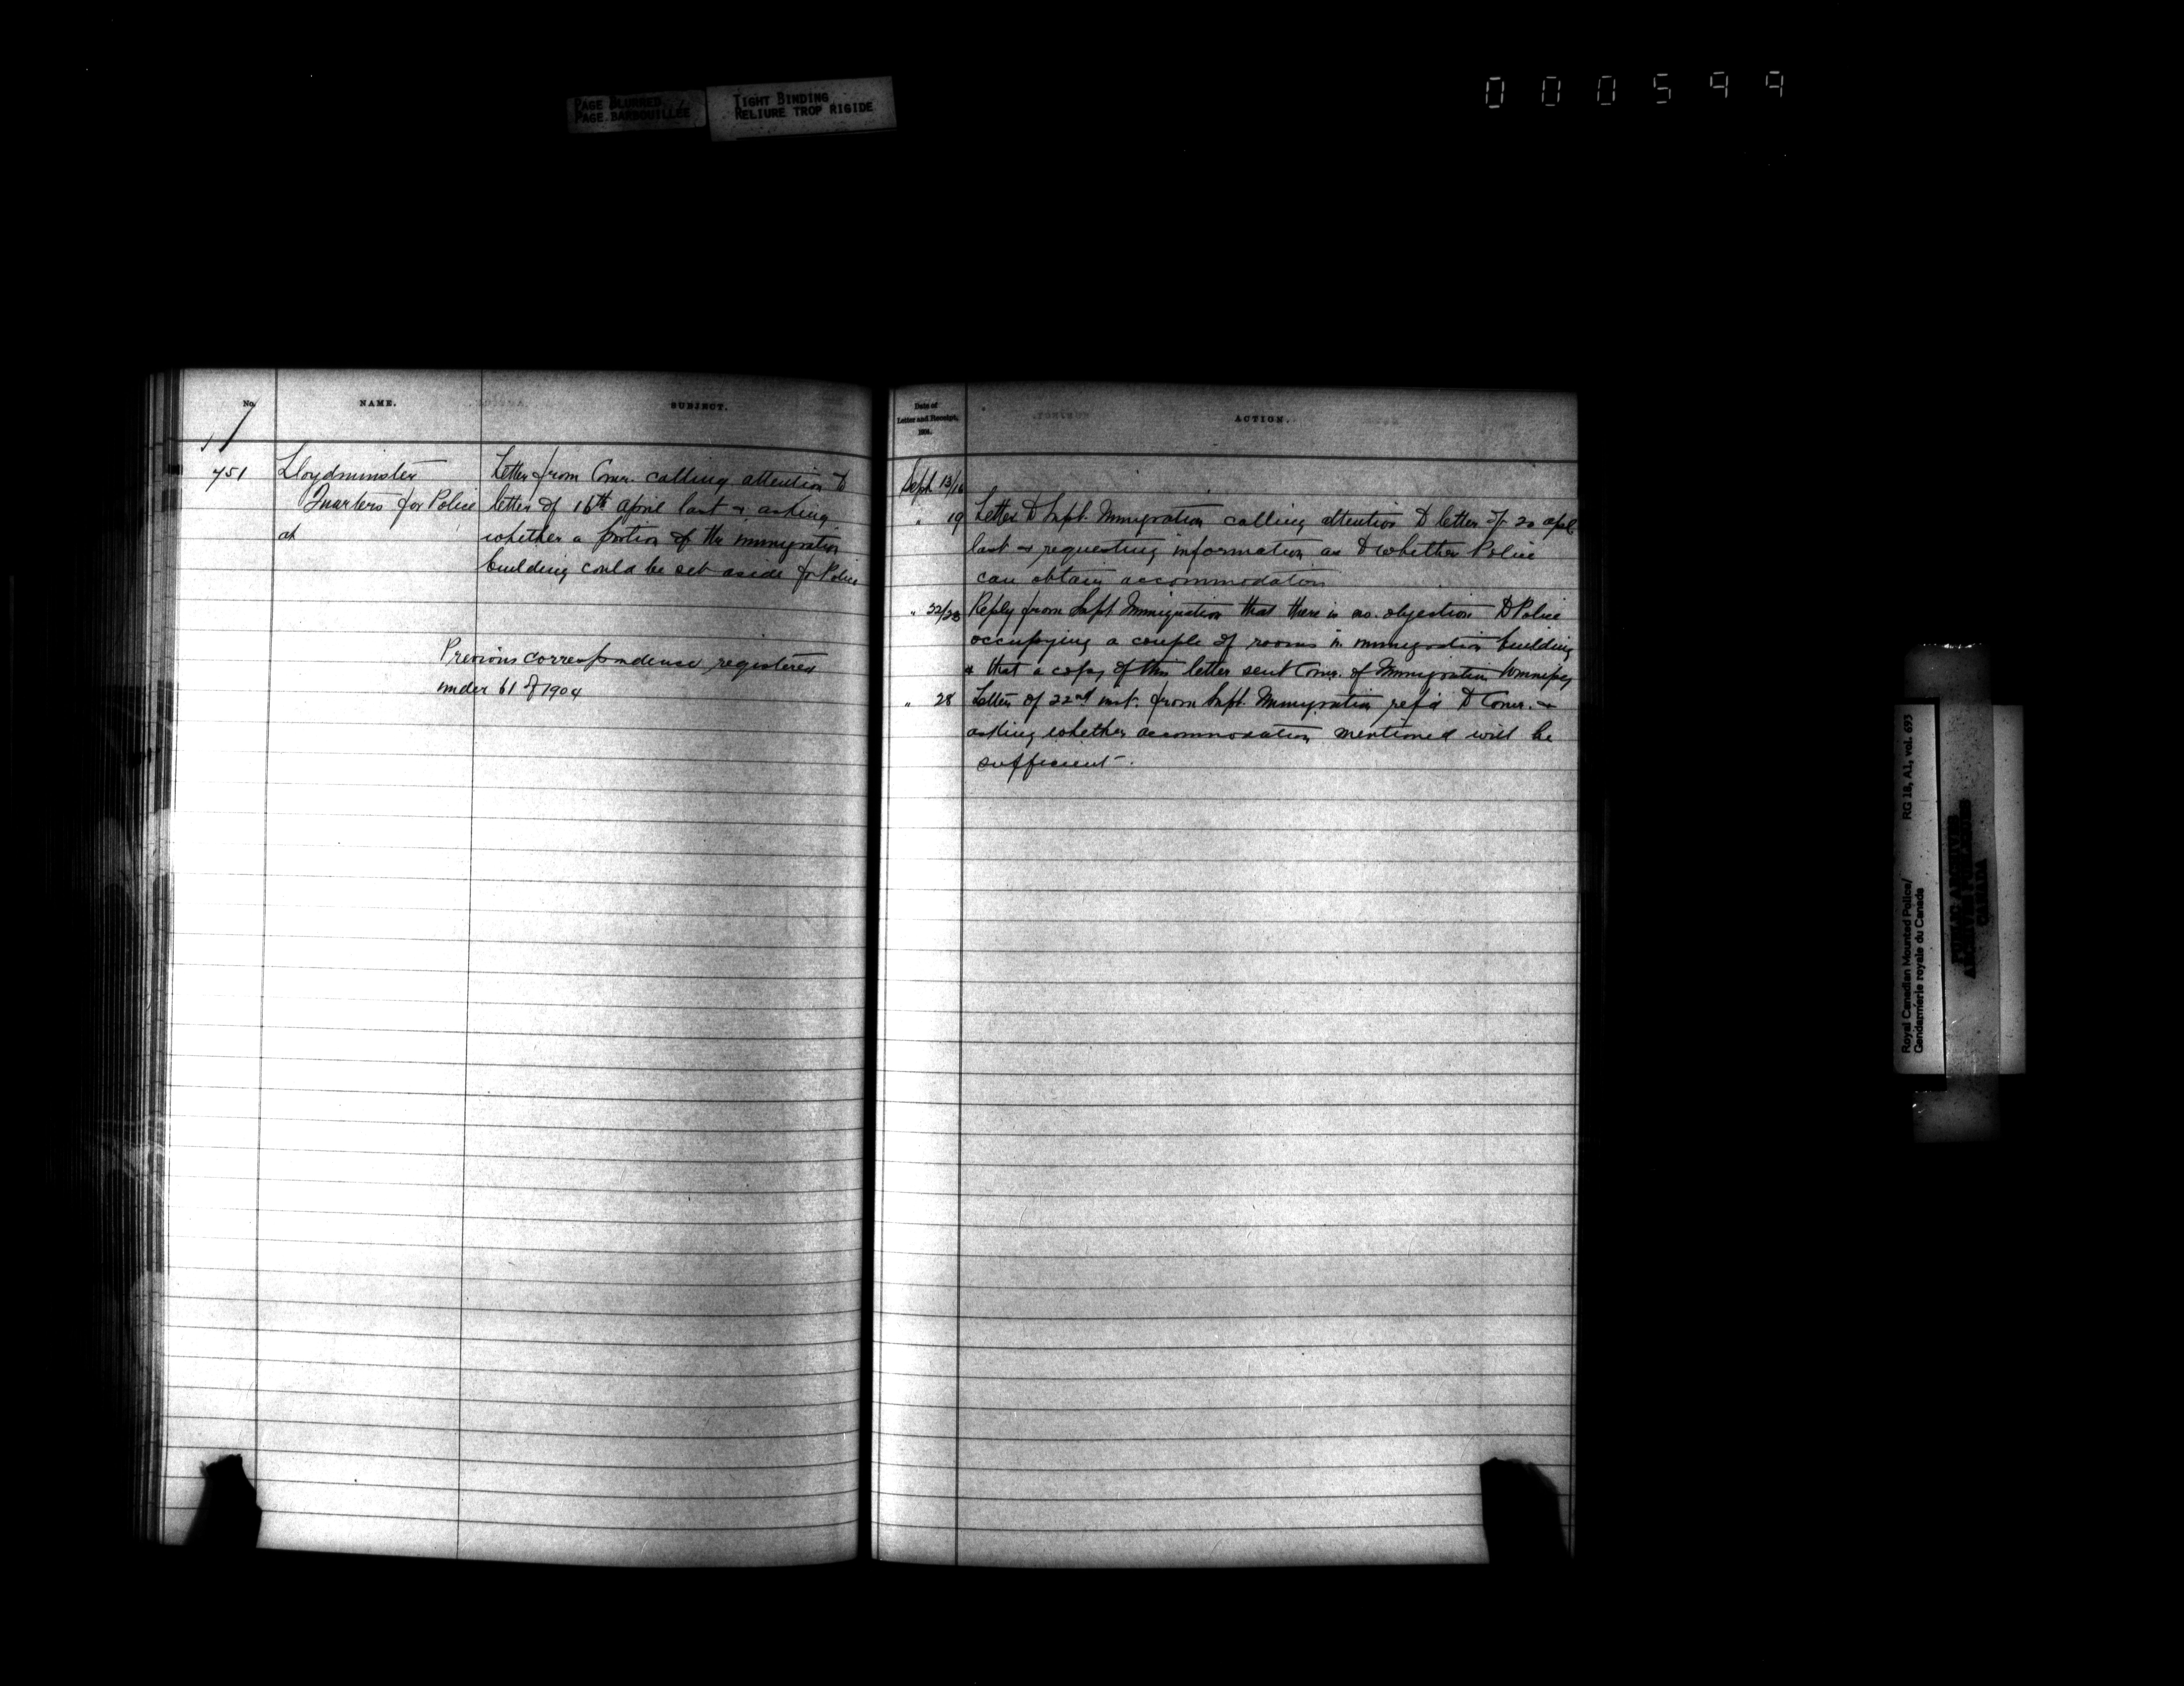 PAGE BLURRED
PAGE BARBOUILLÉE
TIGHT BINDING
RELIURE TROP RIGIDE
000599
No.
NAME.
SUBJECT.
751
Lloydminster
Quarters for Police
at
Letter from Comr. calling attention to
letter of 16th April last & asking
whether a portion of the immigration
building could be set aside for Police
Previous correspondence registered
under 61 of 1904
Date of
Letter and Receipt,
1904.
ACTION.
Sept 13/16
" 19 Letter to Supt. Immigration calling attention to letter of 20 Apl
last & requesting information as to whether Police
can obtain accommodation
" 22/23 Reply from Supt Immigration that there is no objection to Police
occupying a couple of rooms in immigration building
& that a copy of this letter sent Comr. of Immigration Winnipeg
" 28 Letter of 22nd inst. from Supt. Immigration ref'd to Comr. &
asking whether accommodation mentioned will be
sufficient.
Royal Canadian Mounted Police/ RG 18, A1, vol. 693
Gendarmerie royale du Canada
PUBLIC ARCHIVES
ARCHIVES PUBLIQUES
CANADA